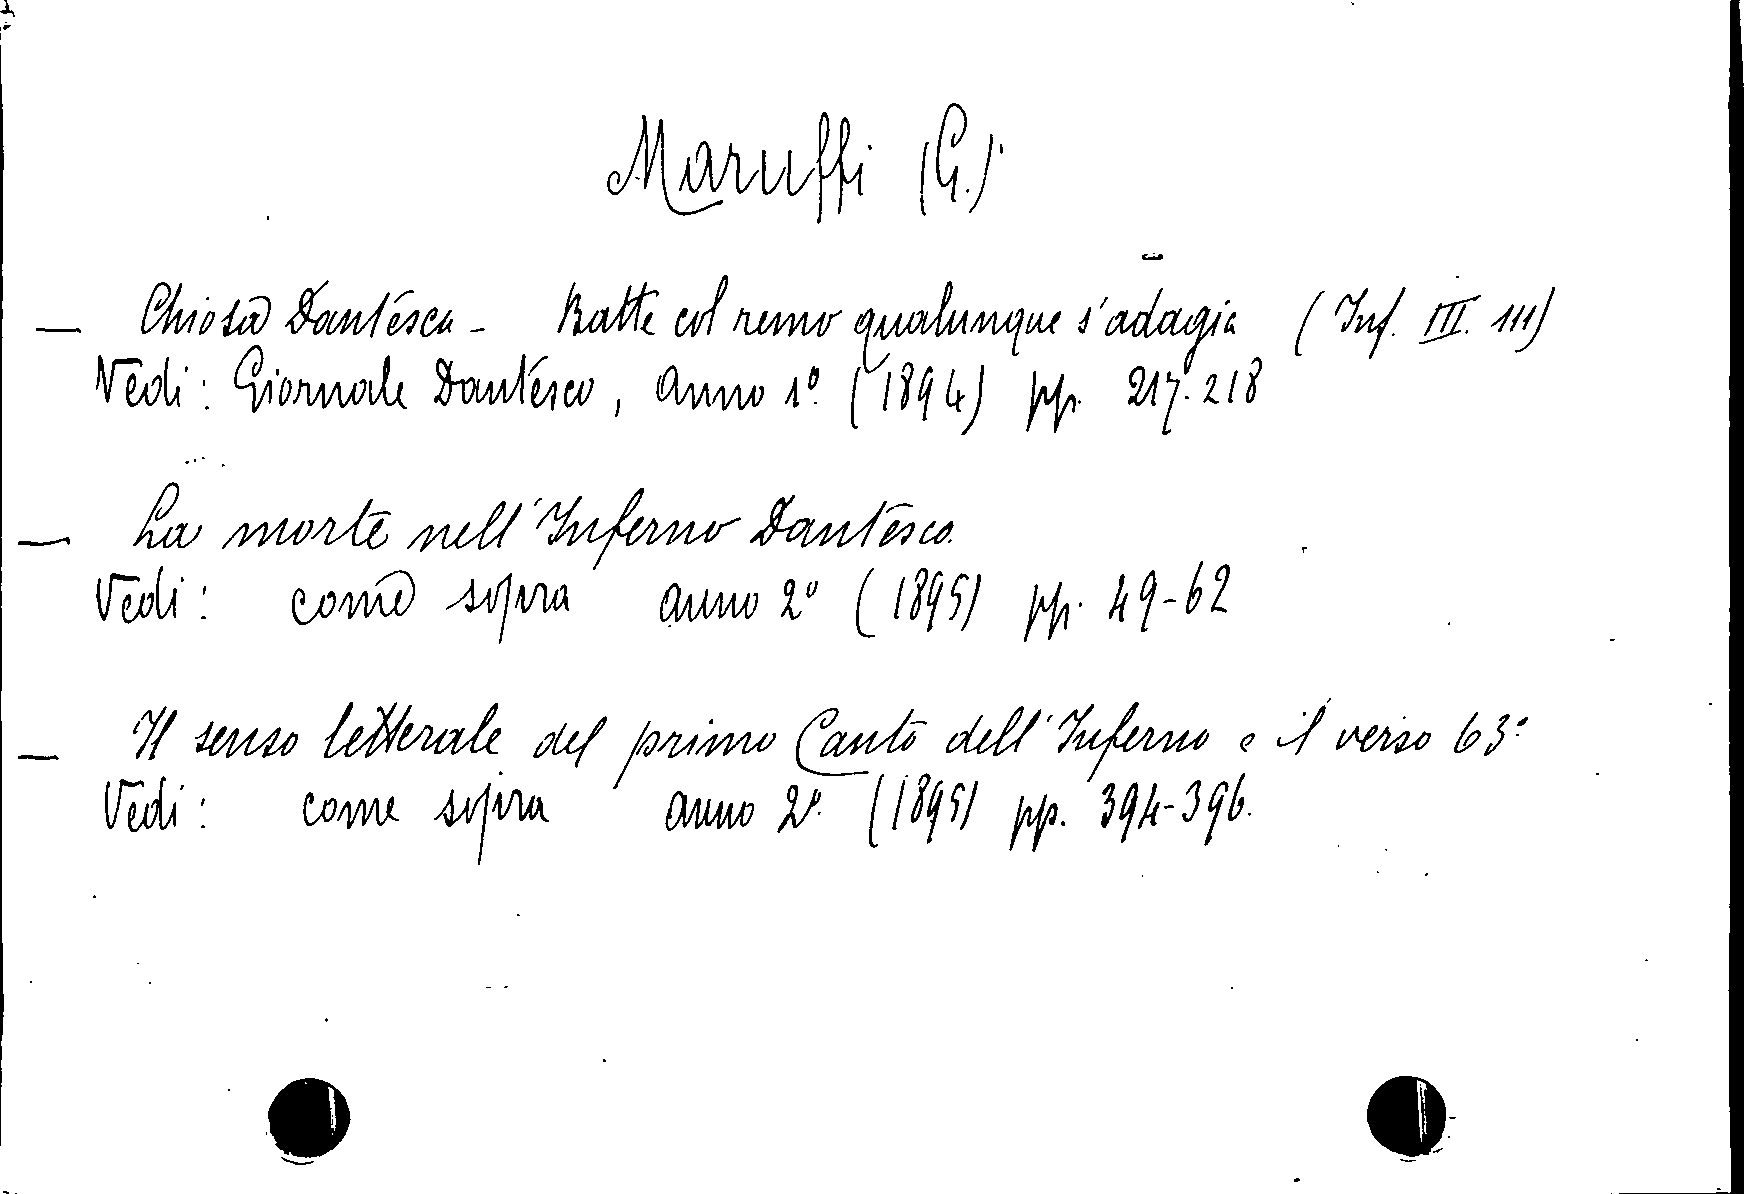 Maruffi (G.)
— Chiosa Dantesca - Batte col remo qualunque s'adagia (Inf. III. 111)
Vedi: Giornale Dantesco, anno 1º. (1894) pp. 217.218
— La morte nell'Inferno Dantesco.
Vedi: come sopra anno 2º (1895) pp. 49-62
— Il senso letterale del primo Canto dell'Inferno e il verso 63º
Vedi: come sopra anno 2º. (1895) pp. 394-396.